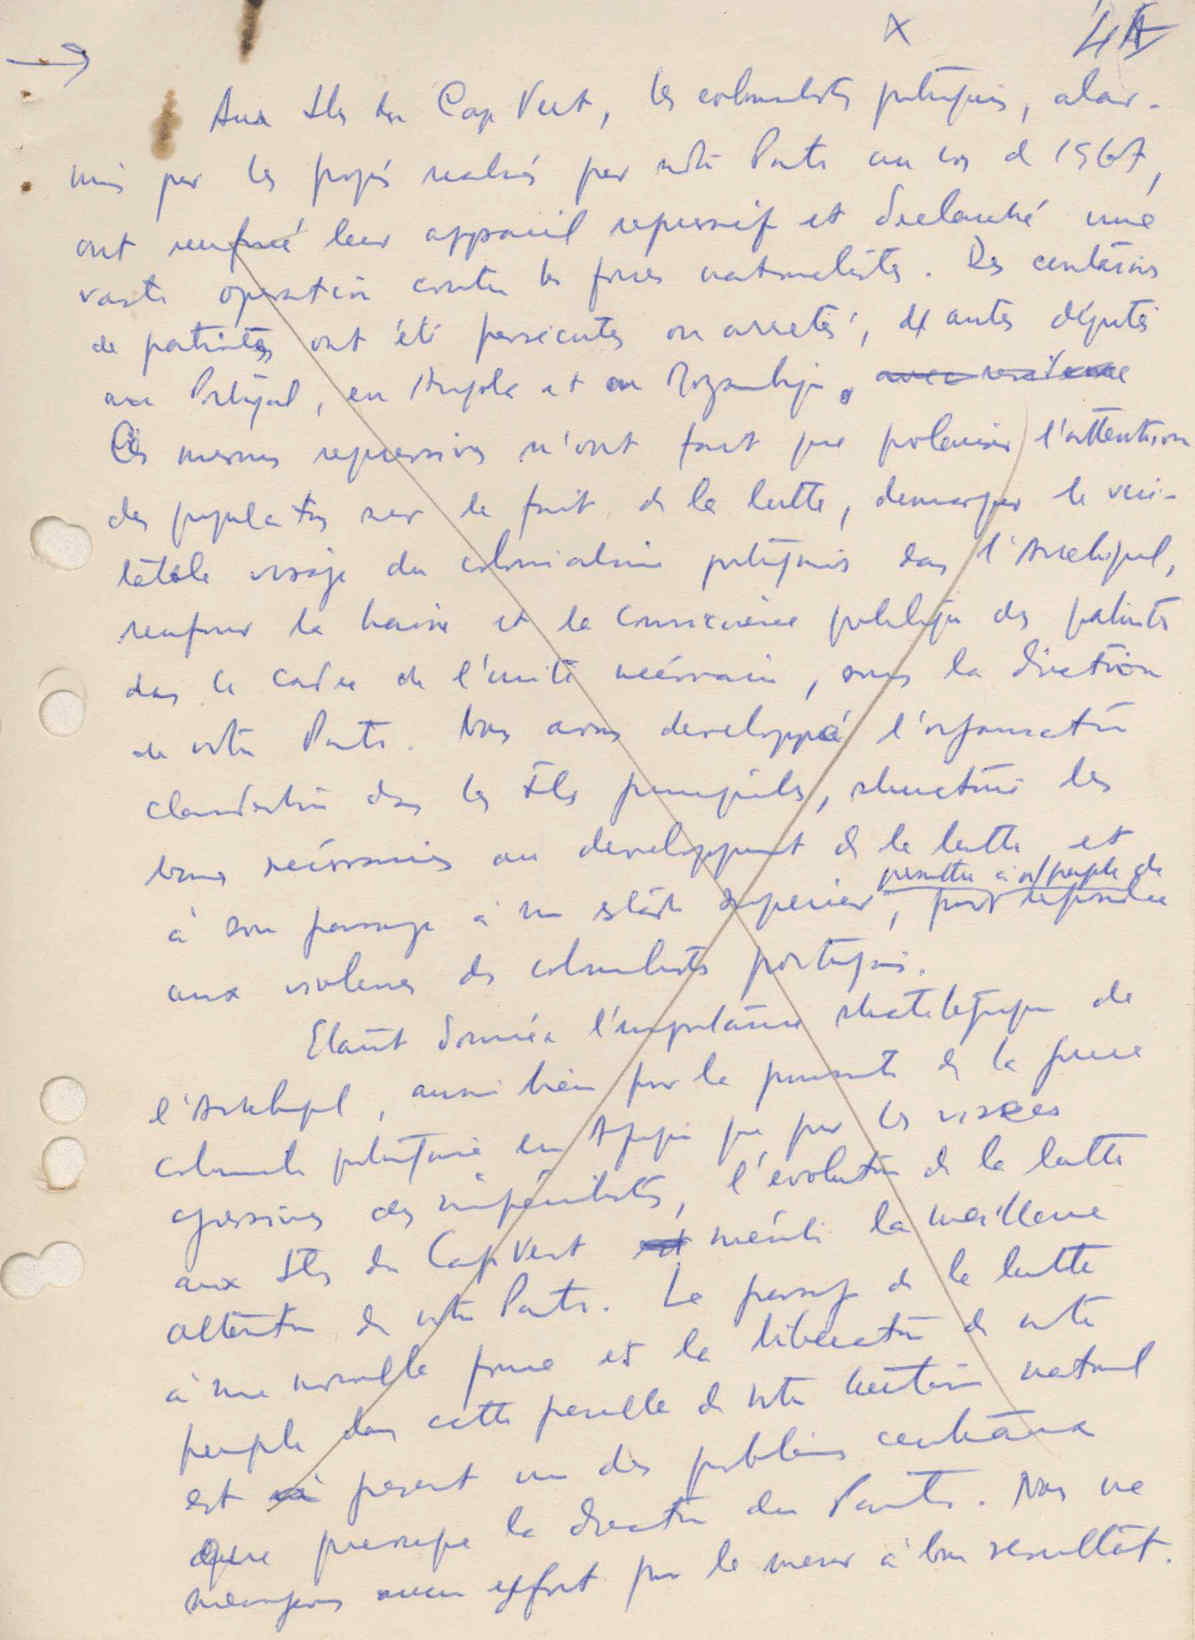 X 4
Aux Iles du Cap Vert, les colonialistes portugais, alar-
més par les progrès réalisés par notre Parti au cours de 1967,
ont renforcé leur appareil repressif et declanché une
vaste opération contre les forces nationalistes. Des centaines
de patriotes ont été persécutés ou arretés, d'autres déportés
au Portugal, en Angola et au Mozambique.
Ces mesures repressives n'ont fait que polariser l'attention
des populations sur le fait de la lutte, demasquer le véri-
table visage du colonialisme portugais dans l'Archipel,
renforcer la haine et la conscience politique des patriotes
dans le cadre de l'unité nécessaire, sous la direction
de notre Parti. Nous avons developpé l'organisation
clandestine dans les Iles principales, structuré les
bases nécessaires au developpement de la lutte et
permettre à n/ peuple de
à son passage à un stade superieur, répondre
aux violences des colonialistes portugais.
Etant donnée l'importance stratégique de
l'Archipel, aussi bien pour la poursuite de la guerre
coloniale portugaise en Afrique que pour les visées
agressives des impérialistes, l'évolution de la lutte
aux Iles du Cap Vert mérite la meilleure
attention de notre Parti. Le passage de la lutte
à une nouvelle forme et la libération de notre
peuple dans cette parcelle de notre territoire national
est à présent un des problèmes centraux
que préoccupe la direction du Parti. Nous ne
menageons aucun effort pour le mener à bon résultat.